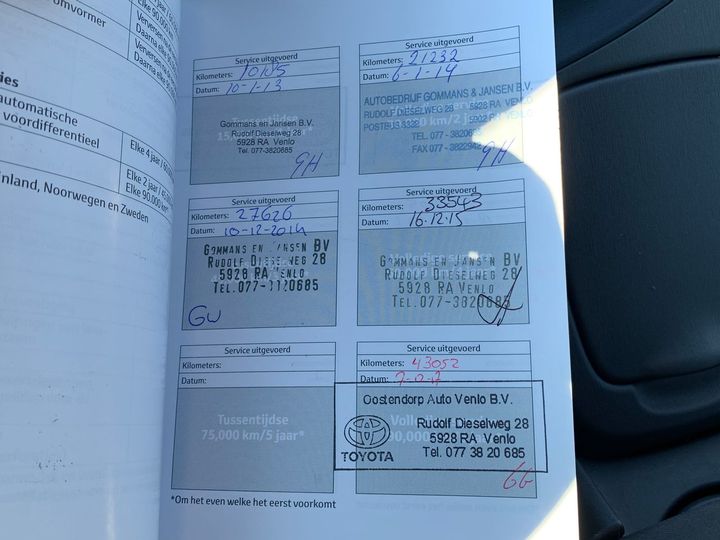 omvormer
Elke 90.000
Verversen
Daarna elke
Verversen
Daarna elke
automatische
voordifferentieel
Elke 4 jaar / 60
Elke 2 jaar / 45
Elke 90.000 km
inland, Noorwegen en Zweden
Service uitgevoerd
Kilometers: 10185
Datum: 10-1-13
Gommans en Jansen B.V.
Rudolf Dieselweg 28
5928 RA Venlo
Tel. 077-3820685
Service uitgevoerd
Kilometers: 21232
Datum: 6-1-14
AUTOBEDRIJF GOMMANS & JANSEN B.V.
RUDOLF DIESELWEG 28 5928 RA VENLO
POSTBUS 3322 5902 RH VENLO
TEL. 077-3820685
FAX 077-3822942
Service uitgevoerd
Kilometers: 27626
Datum: 10-12-2014
GOMMANS EN JANSEN BV
RUDOLF DIESELWEG 28
5928 RA VENLO
TEL.077-3820685
GW
Service uitgevoerd
Kilometers: 33543
Datum: 16.12.15
GOMMANS EN JANSEN BV
RUDOLF DIESELWEG 28
5928 RA VENLO
TEL.077-3820685
Service uitgevoerd
Kilometers:
Datum:
Tussentijdse
75,000 km/5 jaar*
Service uitgevoerd
Kilometers: 43052
Datum:
Oostendorp Auto Venlo B.V.
Rudolf Dieselweg 28
5928 RA Venlo
Tel. 077 38 20 685
TOYOTA
GG
*Om het even welke het eerst voorkomt